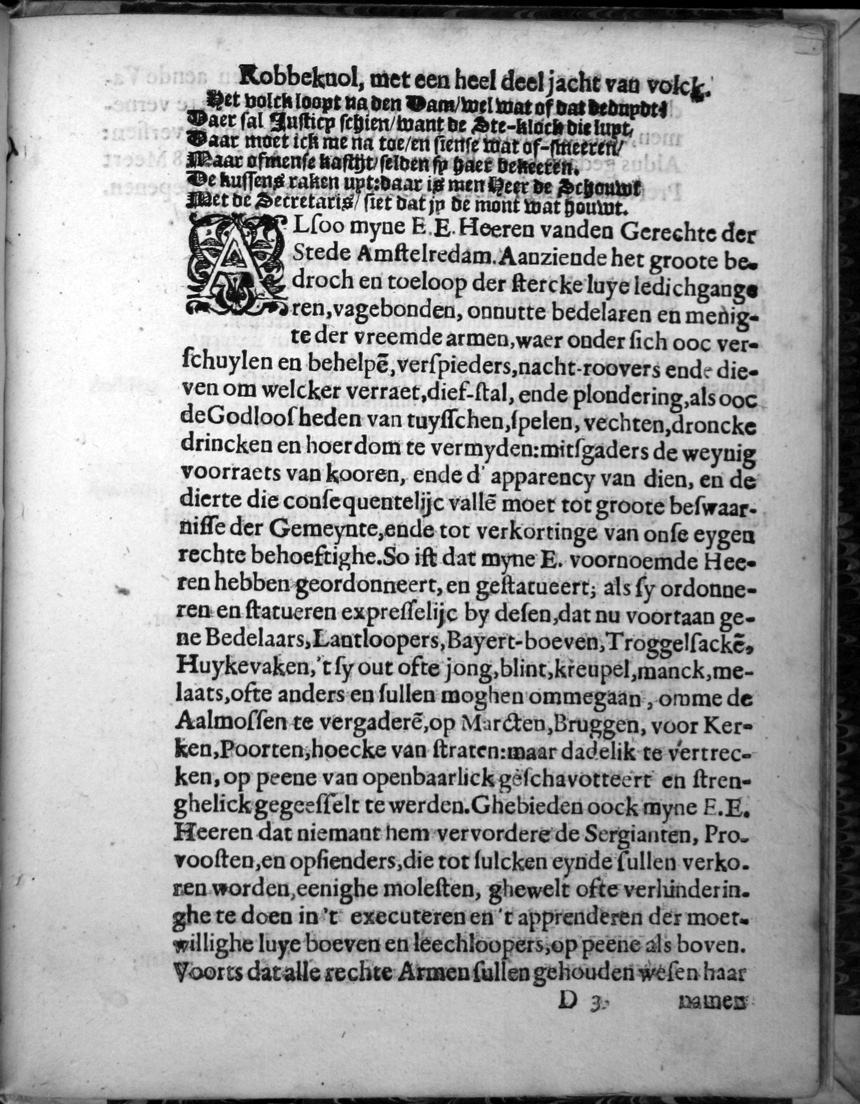 Robbeknol, met een heel deel jacht van volck.
Het volck loopt na den Dam/wel wat of dat beduydt?
Daer sal Justicy schien/want de Ste-klock die luyt,
Daar moet ick me na toe/en siense wat of-smeeren/
Maar ofmense kastijt/selden sy haer bekeeren.
De kussens raken uyt:daar is men Heer de Schouwt
Met de Secretaris/siet dat jy de mont wat houwt.
ALſoo myne E.E. Heeren vanden Gerechte der
Stede Amſtelredam. Aanziende het groote be-
droch en toeloop der ſtercke luye ledichgange
ren,vagebonden, onnutte bedelaren en menig-
te der vreemde armen,waer onder ſich ooc ver-
ſchuylen en behelpẽ,verſpieders,nacht-roovers ende die-
ven om welcker verraet,dief-ſtal, ende plondering,als ooc
de Godlooſheden van tuyſſchen,ſpelen, vechten,droncke
drincken en hoerdom te vermyden:mitſgaders de weynig
voorraets van kooren, ende d' apparency van dien, en de
dierte die conſequentelijc vallẽ moet tot groote beſwaar-
niſſe der Gemeynte,ende tot verkortinge van onſe eygen
rechte behoeftighe.So iſt dat myne E. voornoemde Hee-
ren hebben geordonneert, en geſtatueert; als ſy ordonne-
ren en ſtatueren expreſſelijc by deſen,dat nu voortaan ge-
ne Bedelaars,Lantloopers,Bayert-boeven,Troggelſackẽ,
Huykevaken,'t ſy out ofte jong,blint,kreupel,manck,me-
laats,ofte anders en ſullen moghen ommegaan, omme de
Aalmoſſen te vergaderẽ,op Marcten,Bruggen, voor Ker-
ken,Poorten,hoecke van ſtraten:maar dadelik te vertrec-
ken, op peene van openbaarlick geſchavotteert en ſtren-
ghelick gegeeſſelt te werden.Ghebieden oock myne E.E.
Heeren dat niemant hem vervordere de Sergianten, Pro-
vooſten,en opſienders,die tot ſulcken eynde ſullen verko-
ren worden,eenighe moleſten, ghewelt ofte verhinderin-
ghe te doen in 't executeren en 't apprenderen der moet-
willighe luye boeven en leechloopers,op peene als boven.
Voorts dat alle rechte Armen ſullen gehouden weſen haar
D 3. namen